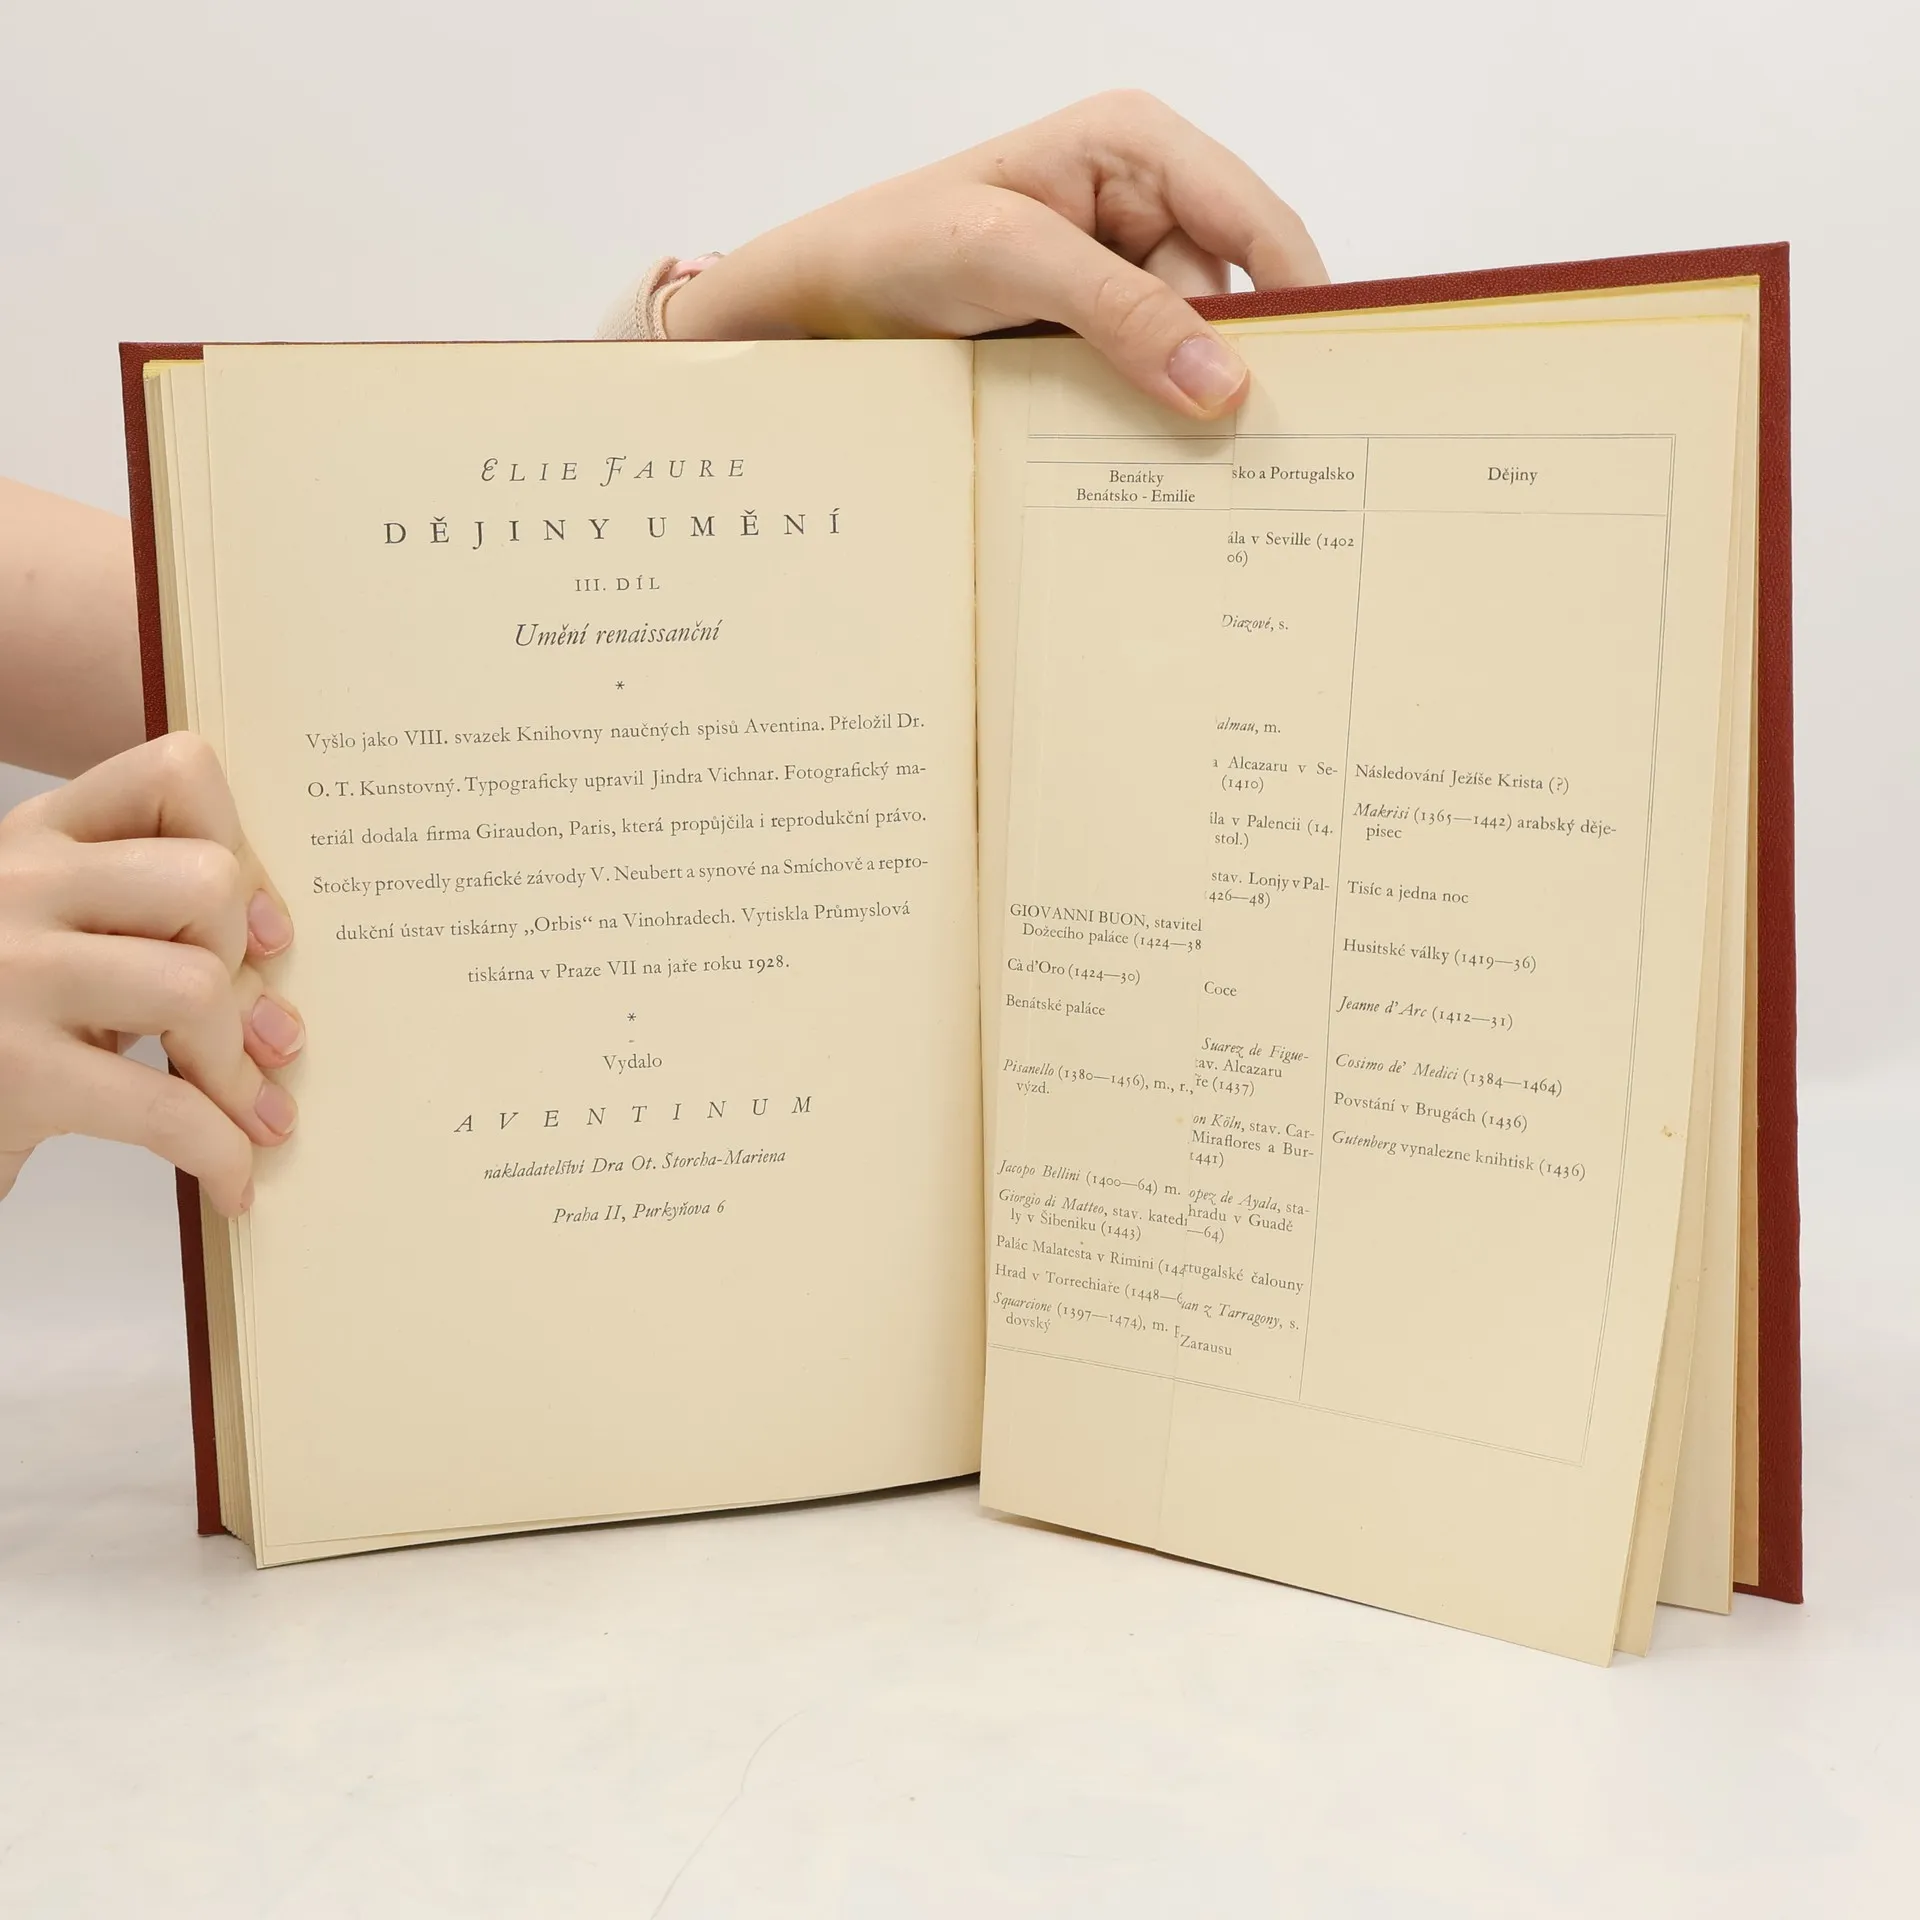 ELIE FAURE
DĚJINY UMĚNÍ
III. DÍL
Umění renaissanční
*
Vyšlo jako VIII. svazek Knihovny naučných spisů Aventina. Přeložil Dr.
O. T. Kunstovný. Typograficky upravil Jindra Vichnar. Fotografický ma-
teriál dodala firma Giraudon, Paris, která propůjčila i reprodukční právo.
Štočky provedly grafické závody V. Neubert a synové na Smíchově a repro-
dukční ústav tiskárny „Orbis“ na Vinohradech. Vytiskla Průmyslová
tiskárna v Praze VII na jaře roku 1928.
*
Vydalo
AVENTINUM
nakladatelství Dra Ot. Štorcha-Mariena
Praha II, Purkyňova 6
Benátky
Benátsko - Emilie
GIOVANNI BUON, stavitel
Dožecího paláce (1424—38
Cà d'Oro (1424—30)
Benátské paláce
Pisanello (1380—1456), m., r.,
výzd.
Jacopo Bellini (1400—64) m.
Giorgio di Matteo, stav. katedr
ly v Šibeniku (1443)
Palác Malatesta v Rimini (144
Hrad v Torrechiaře (1448—6
Squarcione (1397—1474), m. P
dovský
sko a Portugalsko
ála v Seville (1402
06)
Diazové, s.
almau, m.
a Alcazaru v Se-
(1410)
ála v Palencii (14.
stol.)
stav. Lonjy v Pal-
426—48)
Coce
Suarez de Figue-
tav. Alcazaru
ře (1437)
on Köln, stav. Car-
Miraflores a Bur-
1441)
opez de Ayala, sta-
hradu v Guadě
—64)
rtugalské čalouny
uan z Tarragony, s.
Zarausu
Dějiny
Následování Ježíše Krista (?)
Makrisi (1365—1442) arabský děje-
pisec
Tisíc a jedna noc
Husitské války (1419—36)
Jeanne d'Arc (1412—31)
Cosimo de' Medici (1384—1464)
Povstání v Brugách (1436)
Gutenberg vynalezne knihtisk (1436)